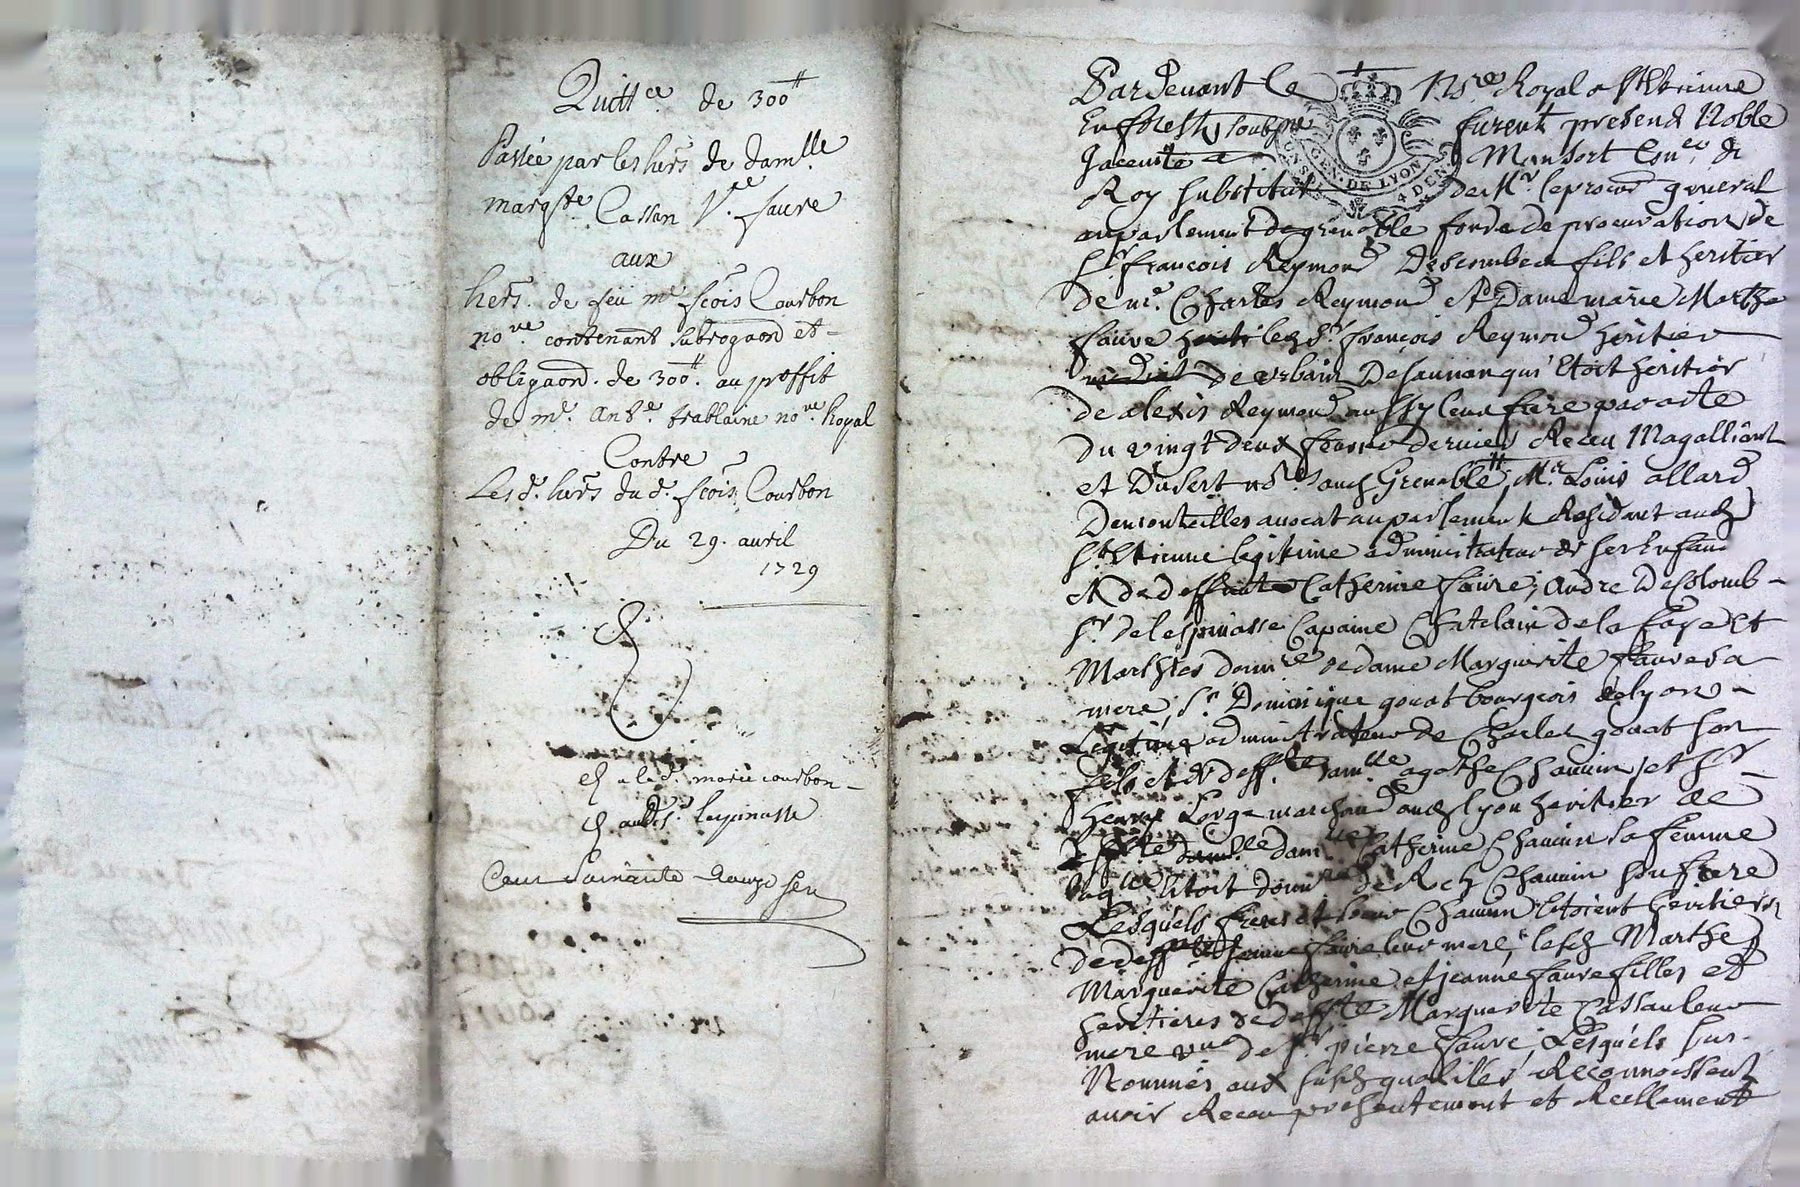 Quitt.ce de 300#
Passée par les hers de dam.lle
marg.te Cassan V.e faure
aux
hers. de feü m.e fcois Courbon
no.re contenant subrogaon et
obligaon. de 300#. au proffit
de m.e ant.e trablaine no.re Royal
Contre
Les d. hers du d. fcois Courbon
Du 29. auril
1729
marie courbon
lespinasse
Cent soixante
Pardeuant le N.re Royal a St Etienne
En forest soubs.ne furent presend Noble
Jacemite Monfort Con.er du
Roy substitut de Mr le procur general
au parlement de grenoble fonde de procuration de
Sr francois Reymond Descombes fils et heritier
de me. Charles Reymond et Dame marie Marthe
faure led Sr. françois Reymond heritier
de urbain Desaunan qui Etoit heritier
de alexis Reymond aussy leur frere par acte
du vingt deux feurier dernier Receu Magalliant
et Dusert no.res aud Grenoble, Me. Louis allard
Demonteilles auocat au parlement Residant aud
St Etienne legitime administrateur de ses Enfans
et de deffunte Catherine faure; André DeColomb
Sr de lespinasse Capaine Chatelain de la faye et
Marlhes donn.re de dame Marguerite faure sa
mere, Sr. Dominique gouat bourgeois de lyon
Legitime administrateur de Charles gouat son
fils et de deff.te dam.lle agathe Chauuin, et Sr
henry Lorge marchand aud lyon heritier de
deff.te dam.lle Catherine Chauuin sa femme
laq.lle Etoit donn.re de Chauuin son frere
Lesquels freres et soeurs Chauuin Etoient heritiers
de deff.te Jeanne faure leur mere, lesd Marthe
Marguerite Catherine et jeanne faure filles et
heritieres de deff.te Marguerite Cassan leur
mere vue de Sr pierre faure, Lesquels sus
Nommés aux susd qualites Reconnoissent
auoir Receu presentement et Reellement